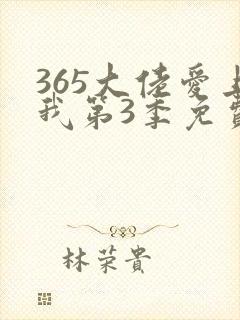 365大佬爱上
我第3季免费
林荣貴